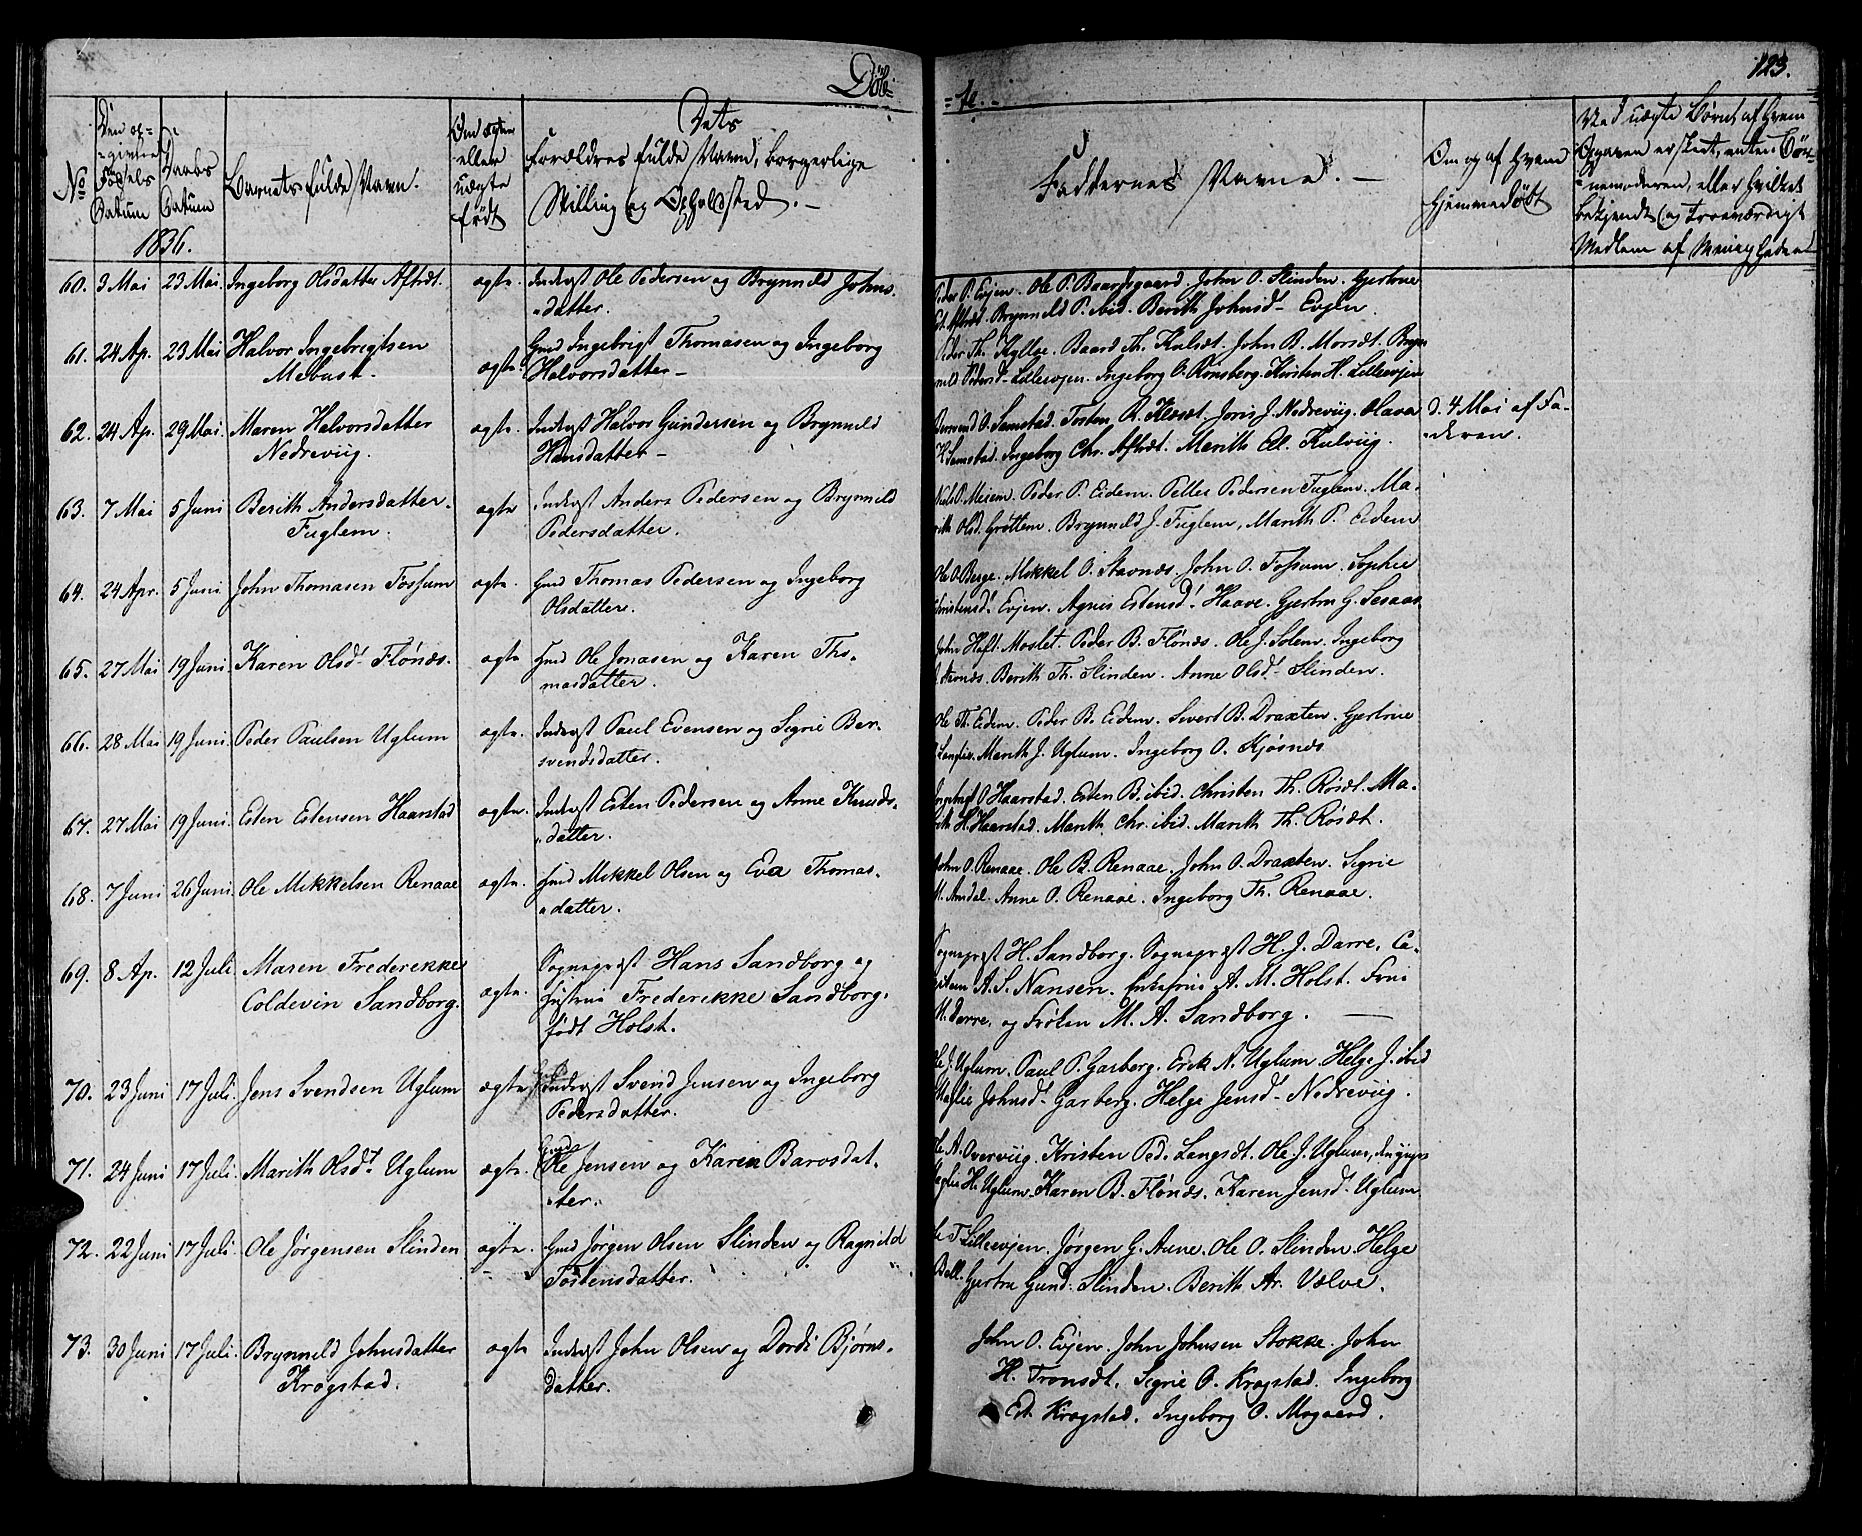 Døb-
-te.-
123.
No
Den op-
-givne
Fødsels
Datum
Daabs
Datum
1836.
Barnets fulde Navn.
Om ægte
eller
uægte
født
Dets
Forældres fulde Navn, borgerlige
Stilling og Opholdsted.-
Faddernes Navne.-
Om og af Hvem
hjemmedøbt
Ved uægte Børn af Hvem
Opgaven er skeet, enten Bør-
-nemoderen, eller hvilket
bekjendt og troeværdigt
Medlem af Menigheden
60. 3 Mai 23 Mai Ingeborg Olsdatter Aftret. ægte. Inderst Ole Pedersen og Brynnild Johns-
datter.
Peder P. Evjen. Ole P. Baardsgaard. John O. Slinden. Gjertrue
Brynnild P. ibid. Berith Johnsd- Evjen.
61. 24 Ap. 23 Mai Halvor Ingebrigtsen
Mebust. ægte. Gmd Ingebrigt Thomasen og Ingeborg
Halvorsdatter-
Peder Th. Kylloe. Baard Th. Kulset. John B. Morset. Bryn-
nild Pedersd- Lilleevjen. Ingeborg O. Rønsberg. Kirsten H. Lilleevjen
62. 24 Ap. 29 Mai. Maren Halvorsdatter
Nedreviig. ægte. Inderst Halvor Gundersen og Brynnild
Hansdatter-
O. Samstad. Tosten R. Joris J. Nedreviig. Olava
H. Samstad. Ingeborg Chr. Aftret. Marith Ed. Kulviig.
D. 4 Mai af Fa-
deren.
63. 7 Mai 5 Juni Berith Andersdatter
Fuglem. ægte Inderst Anders Pedersen og Brynnild
Pedersdatter.
Niels P. Mesem. Peder P. Eidem. Pelles Pedersen Fuglem. Ma-
rith Olsd. Grøttem. Brynnild J. Fuglem, Marith P. Eidem
64. 24 Apr. 5 Juni John Thomasen Fossum ægte. Gmd Thomas Pedersen og Ingeborg
Olsdatter.
Ole O. Berge. Mikkel O. Stavnæs. John O. Fossum. Sophie
Christensd. Evjen. Agnis Estensd. Haave. Gjertru G. Sesaas
65. 27 Mai 19 Juni. Karen Olsdt Flönæs. ægte Gmd Ole Jonasen og Karen Tho-
masdatter.
John Hoft. Moslet. Peder B. Flönæs. Ole J. Solem. Ingeborg
J. Berith Th. Slinden. Anne Olsdt- Slinden.
66. 28 Mai 19 Juni. Peder Paulsen Uglum ægte. Inderst Paul Evensen og Sigrie Ber-
svendsdatter.
Ole Th. Eidem. Peder B. Eidem. Sivert B. Draxten. Gjertrue
Marith J. Uglum. Ingeborg O. Kjøsnæs
67. 27 Mai 19 Juni. Esten Estensen Haarstad ægte. Inderst Esten Pedersen og Anne Knuds-
datter.
Ingebrigt O. Haarstad. Esten B. ibid. Christen Th. Røset. Ma-
rith H. Haarstad. Marith Chr. ibid. Marith Th. Røset.
68. 7 Juni 26 Juni. Ole Mikkelsen Renaae ægte. Gmd Mikkel Olsen og Eva Thomas-
datter.
John O. Renaae. Ole B. Renaae. John O. Draxten. Sigrie
M. Amdal. Anne O. Renaae. Ingeborg Th. Renaae.
69. 8 Ap. 12 Juli Maren Frederekke
Coldevin Sandborg. ægte. Sognepræst Hans Sandborg og
Hustrue Frederikke Sandborg.
født Holst.
Sognepræst H. Sandborg. Sognepræst H. J. Darre. Ca-
pitain A. S. Nansen. Enkefrue A. M. Holst. Frui
M. Darre. og Frøken M. A. Sandborg.
70. 23 Juni 17 Juli. Jens Svendsen Uglum ægte Gmd Inderst Svend Jensen og Ingeborg
Pedersdatter.
Ole J. Uglum. Paul P. Garberg. Erik A. Uglum. Helge J. ibid
Johnsdt- Garberg. Helge Jensdt- Nedreviig.
71. 24 Juni 17 Juli. Marith Olsdt Uglum ægte. Gmd Ole Jensen og Karen Barosdat-
ter.
Ole A. Overviig. Kristen Ped. Langset. Ole J. Uglum, den yngre
H. Uglum. Karen B. Flönæs. Karen Jensdt Uglum
72. 22 Juni 17 Juli. Ole Jörgensen Slinden ægte. Gmd Jörgen Olsen Slinden og Ragnild
Tostensdatter.
Ole T. Lilleevjen. Jörgen G. Aune. Ole O. Slinden. Helge
Bell. Gjertru Gund. Slinden. Berith Ar. Vælve.
73. 30 Juni 17 Juli. Brynnild Johnsdatter
Krogstad. ægte Inderst John Olsen og Dordi Bjørns-
datter.
John O. Evjen. John Johnsen Stokke. John
H. Tronset. Sigrie O. Krogstad. Ingeborg
Ed. Krogstad. Ingeborg O. Mogaard.